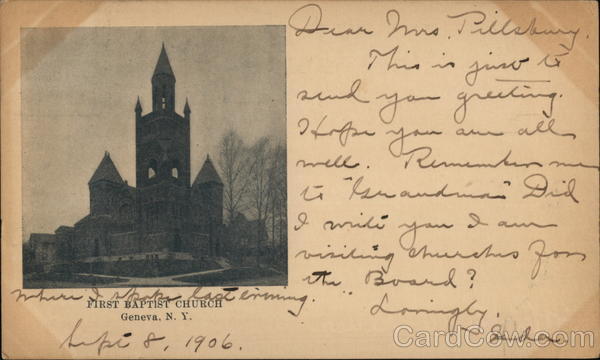 Dear Mrs. Pillsbury.
This is just to
send you greeting.
Hope you are all
well. Remember me
to "Grandma" Did
I write you I am
visiting churches for
the Board?
Lovingly.
FIRST BAPTIST CHURCH
Geneva, N. Y.
where I spoke last evening.
Sept 8, 1906.
CardCow.com